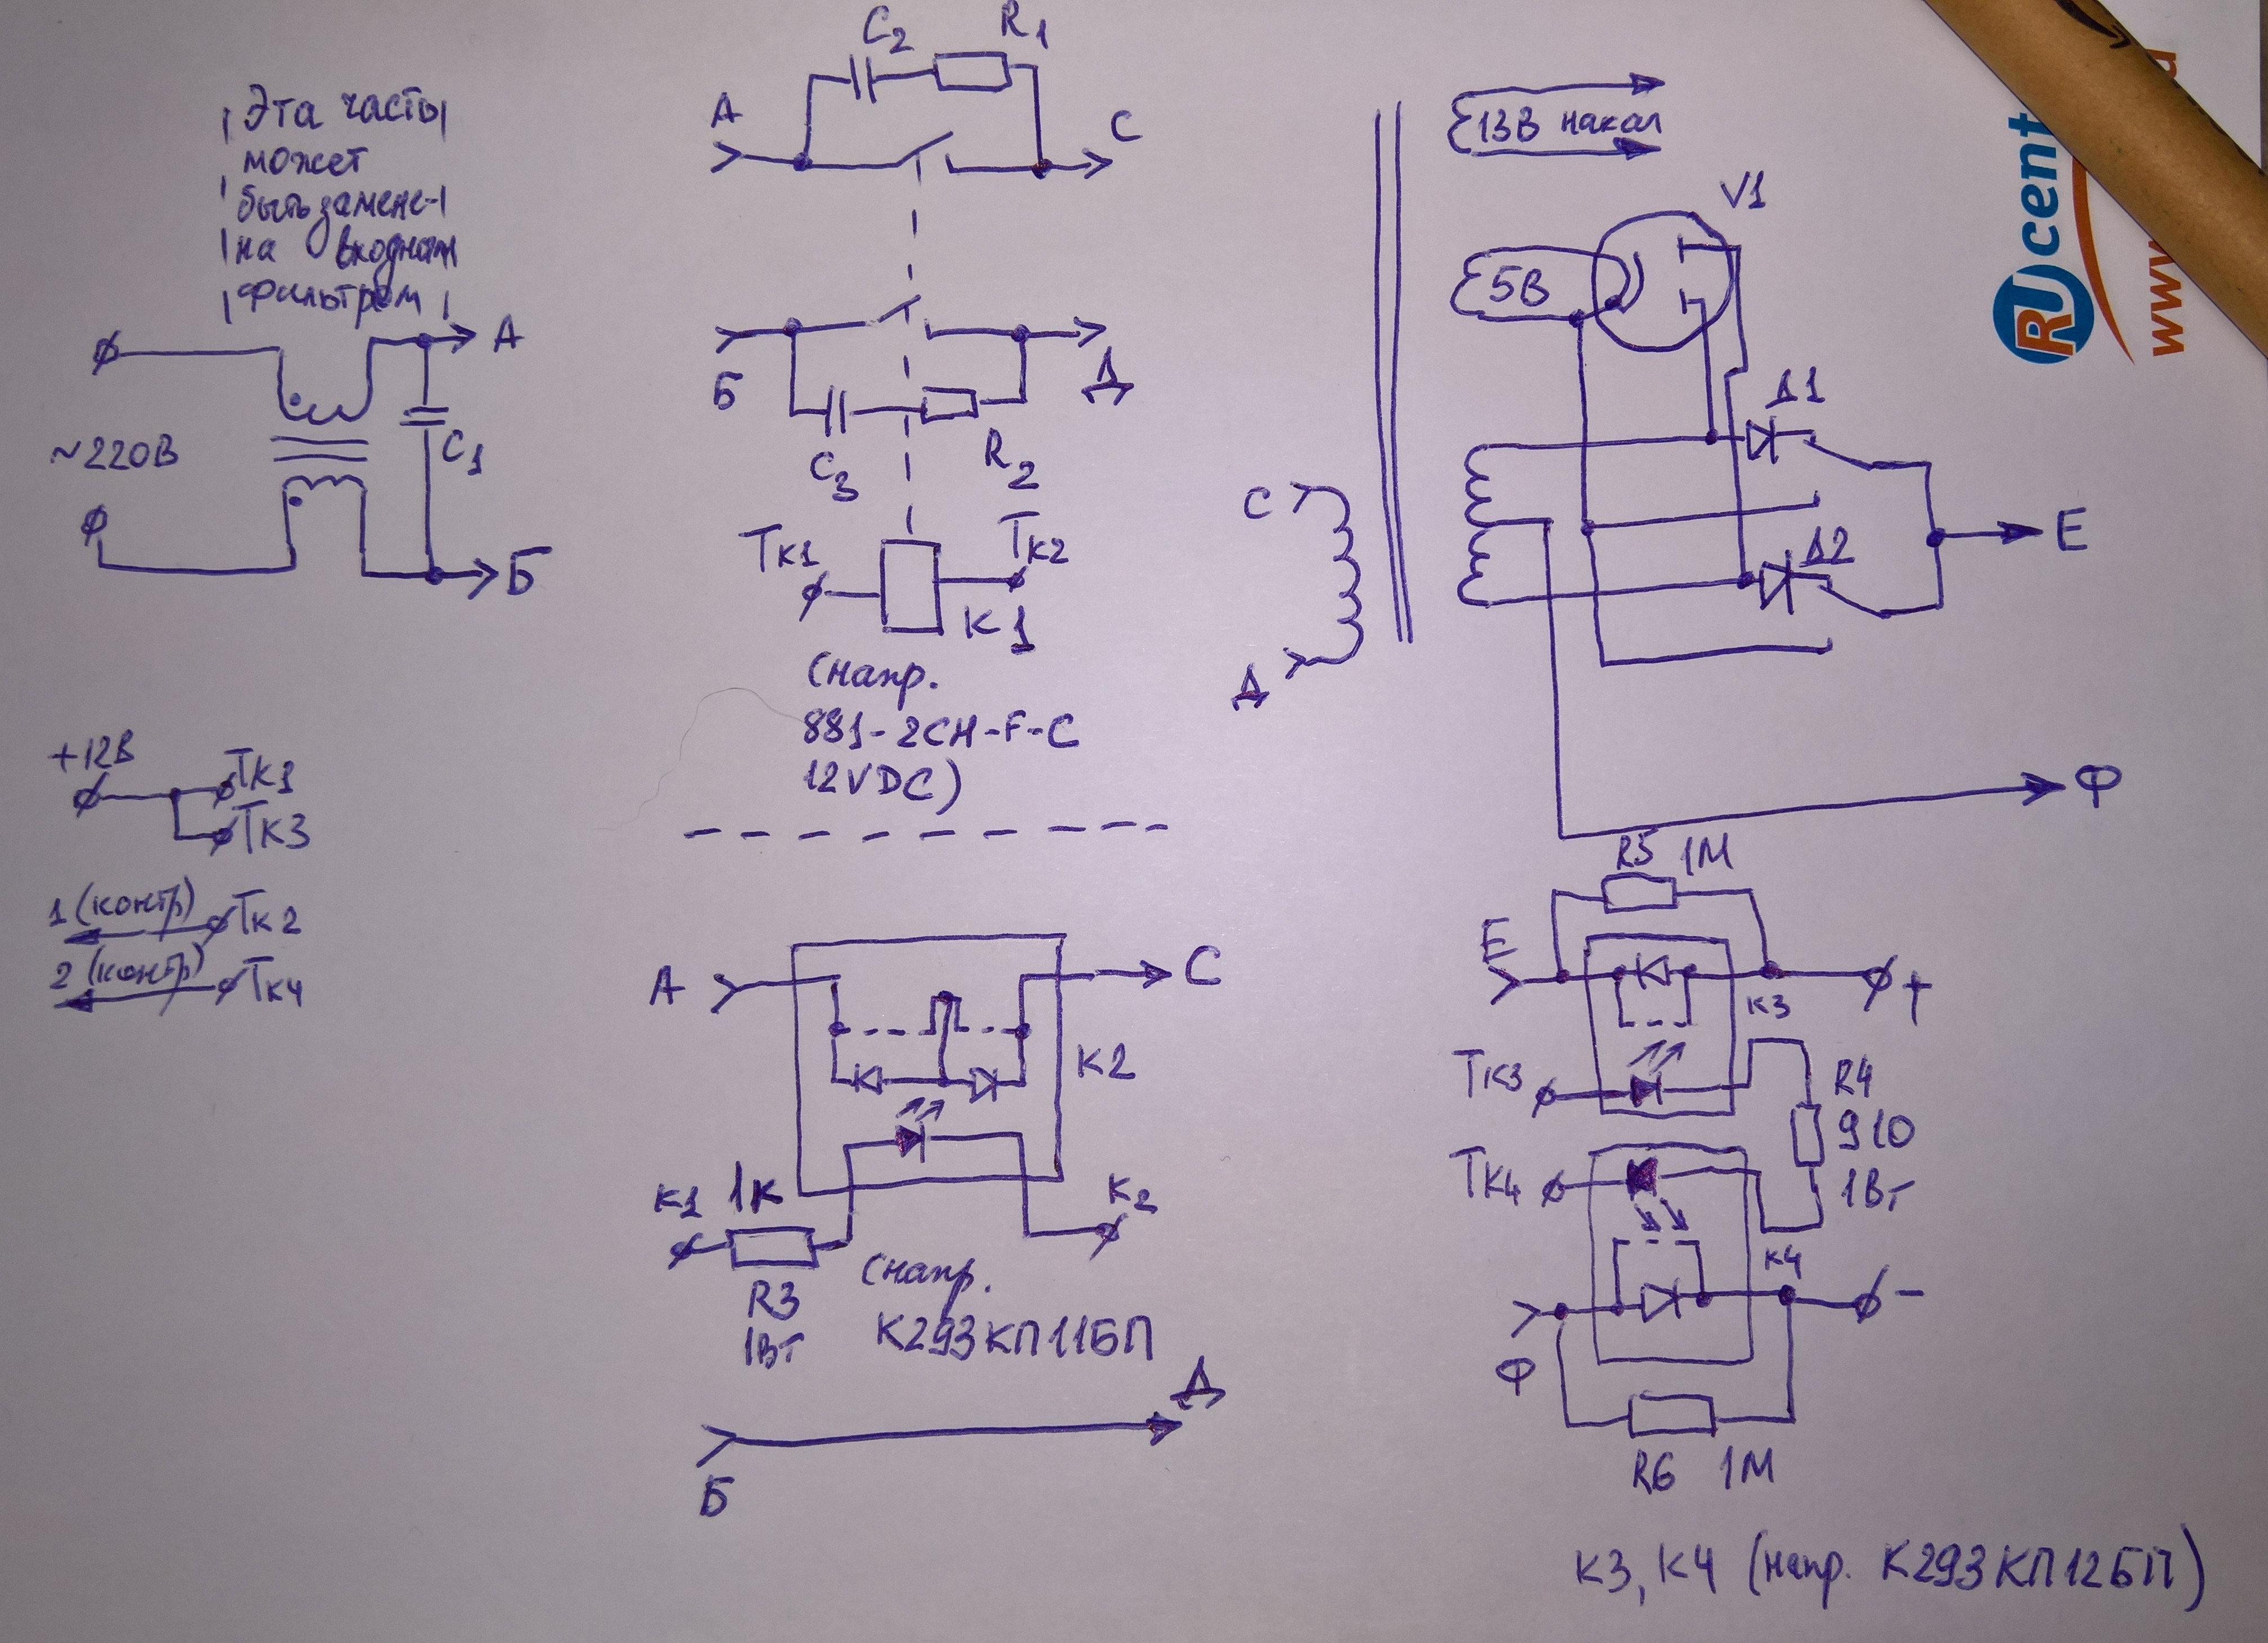 Эта часть
может
быть замене-
на входным
фильтром
А
~220В
C1
Б
+12В
Тк1
Тк3
1 (контр)
Тк2
2 (контр)
Тк4
C2
R1
А
С
Б
Д
C3
R2
Тк1
Тк2
К1
(напр.
881-2CH-F-C
12VDC)
А
С
К2
К1
1К
К2
R3
1Вт
(напр.
К293КП11БП
Д
Б
13В накал
V1
5В
Д1
С
Е
Д2
Д
Ф
R5 1М
Е
К3
+
Тк3
R4
910
1Вт
Тк4
К4
-
Ф
R6 1М
К3, К4 (напр. К293КП12БП)
RUcent
www